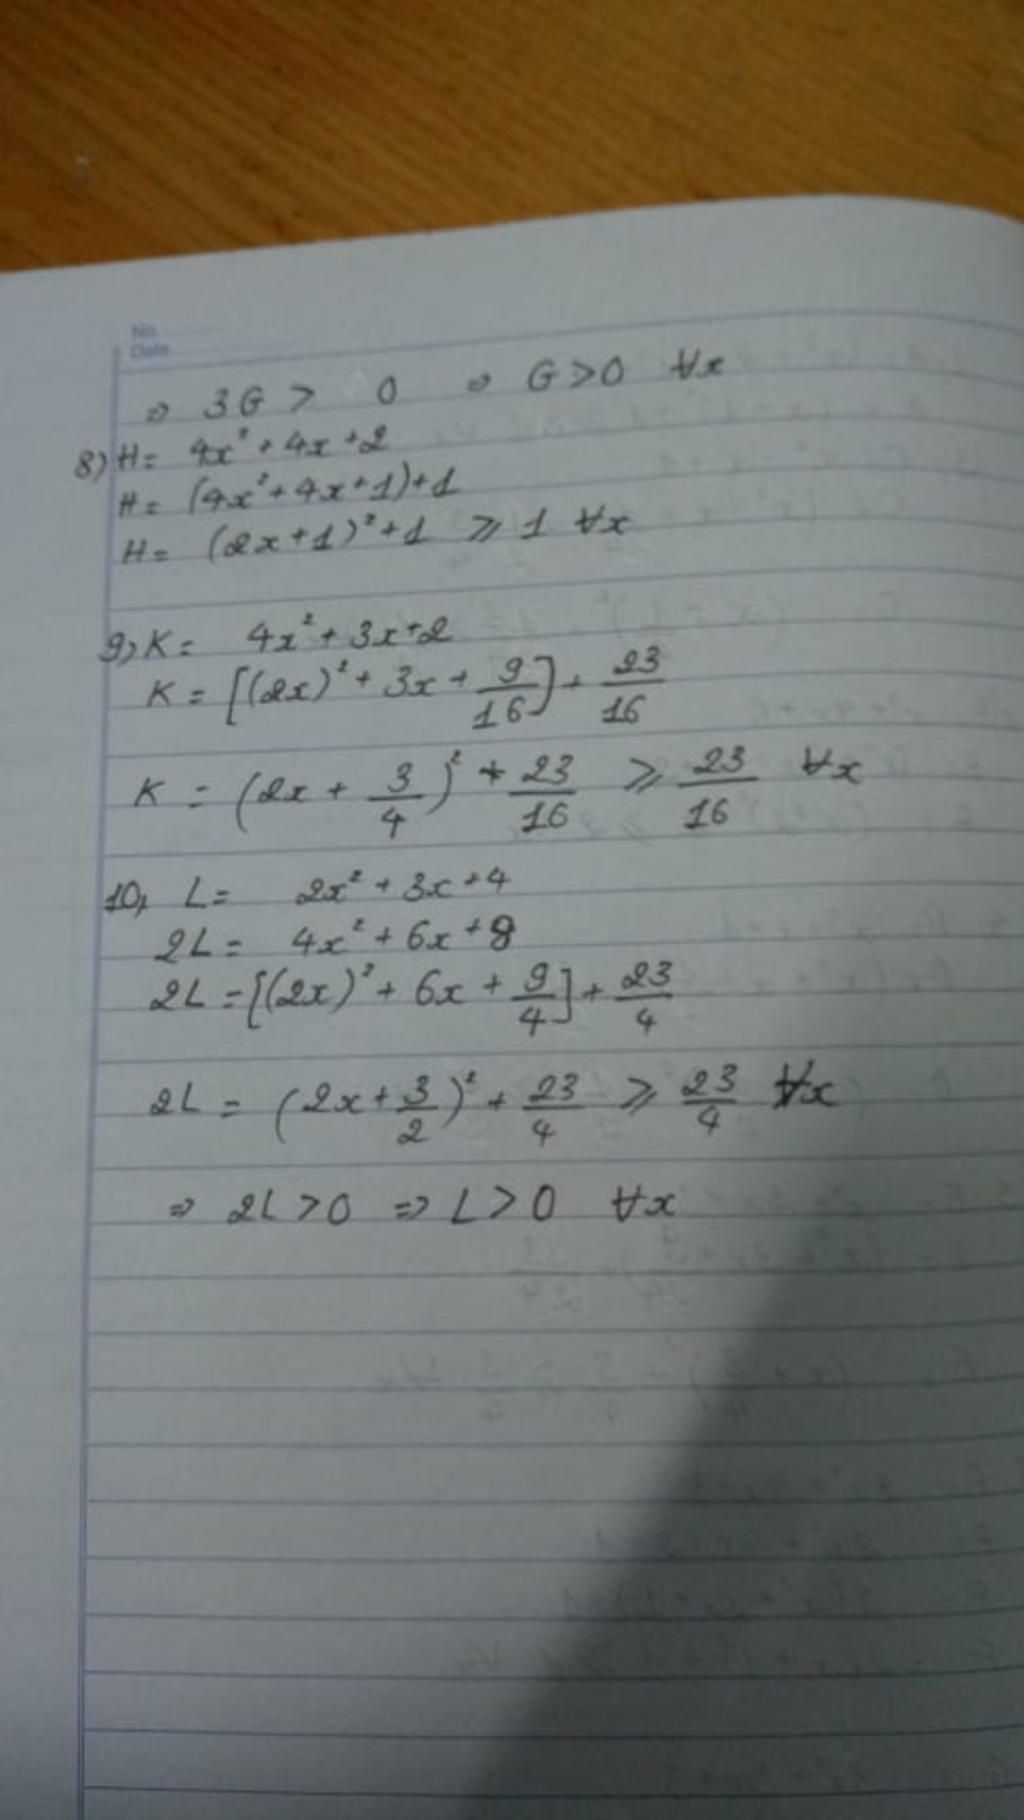 No.
Date
⇒ 3G > 0 ⇒ G>0 ∀x
8) H= 4x²+4x+2
H= (4x²+4x+1)+1
H= (2x+1)²+1 ⩾ 1 ∀x
9, K= 4x²+3x+2
K= [(2x)²+3x+9/16]+23/16
K = (2x+3/4)²+23/16 ⩾ 23/16 ∀x
10, L= 2x²+3x+4
2L= 4x²+6x+8
2L=[(2x)²+6x+9/4]+23/4
2L = (2x+3/2)²+23/4 ⩾ 23/4 ∀x
⇒ 2L>0 ⇒ L>0 ∀x